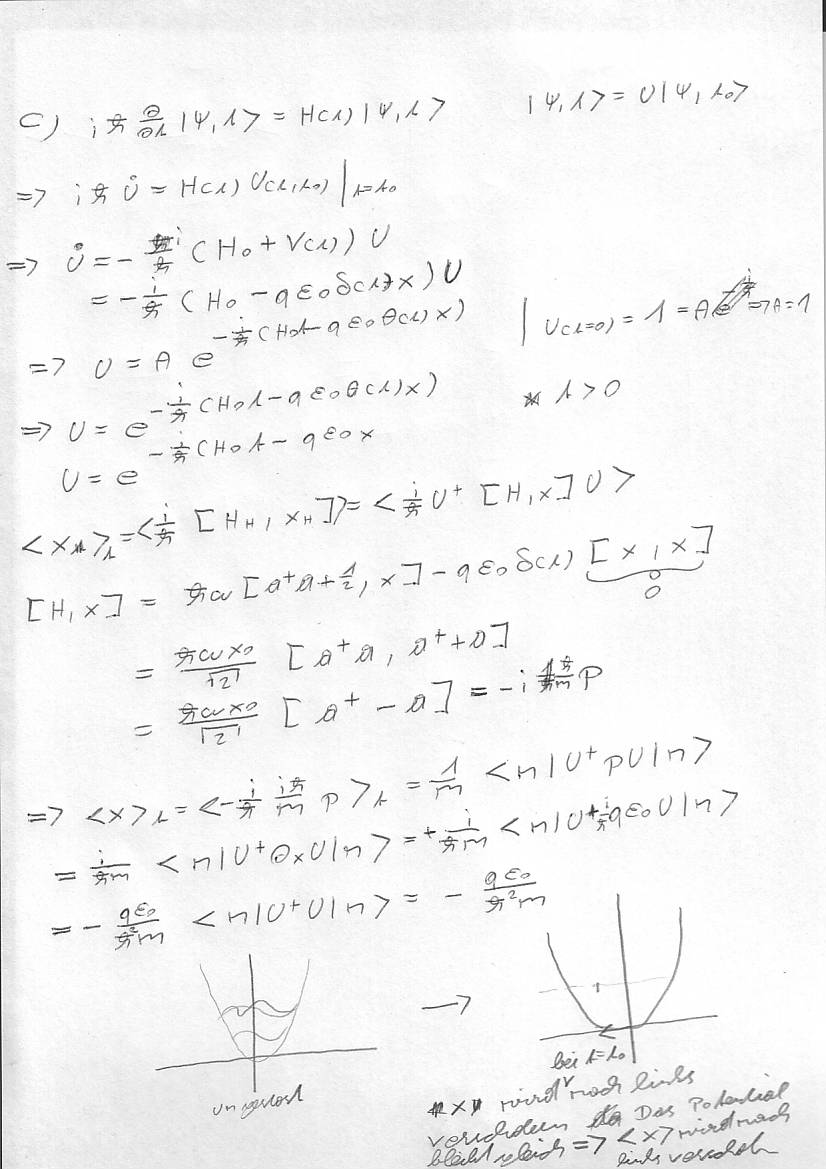 c) iħ ∂/∂t |Ψ,t> = H(t) |Ψ,t>   |Ψ,t> = U|Ψ,t₀>
=> iħ U̇ = H(t) U(t,t₀) |t=t₀
=> U̇ = - i/ħ (H₀ + V(t)) U
= - i/ħ (H₀ - qε₀δ(t)x) U
=> U = A e^{-i/ħ (H₀t - qε₀θ(t)x)}   | U(t=0) = 1 = A => A=1
=> U = e^{-i/ħ (H₀t - qε₀θ(t)x)}   t > 0
U = e^{-i/ħ (H₀t - qε₀x}
<x>ₜ = <i/ħ [H_H, x_H]> = <i/ħ U⁺ [H,x] U>
[H,x] = ħω [a⁺a + 1/2, x] - qε₀ δ(t) [x,x]
0
= ħωx₀/√2 [a⁺a, a⁺+a]
= ħωx₀/√2 [a⁺ - a] = -i ħ/m p
=> <x>ₜ = <- i/ħ iħ/m p>ₜ = 1/m <n|U⁺pU|n>
= i/ħm <n|U⁺∂ₓU|n> = + i/ħm <n|U⁺ i/ħ qε₀U|n>
= - qε₀/ħ²m <n|U⁺U|n> = - qε₀/ħ²m
->
bei t=t₀
ungestört
<x> wird nach links
verschoben da Das Potential
bleibt gleich => <x> wird nach
links verschoben